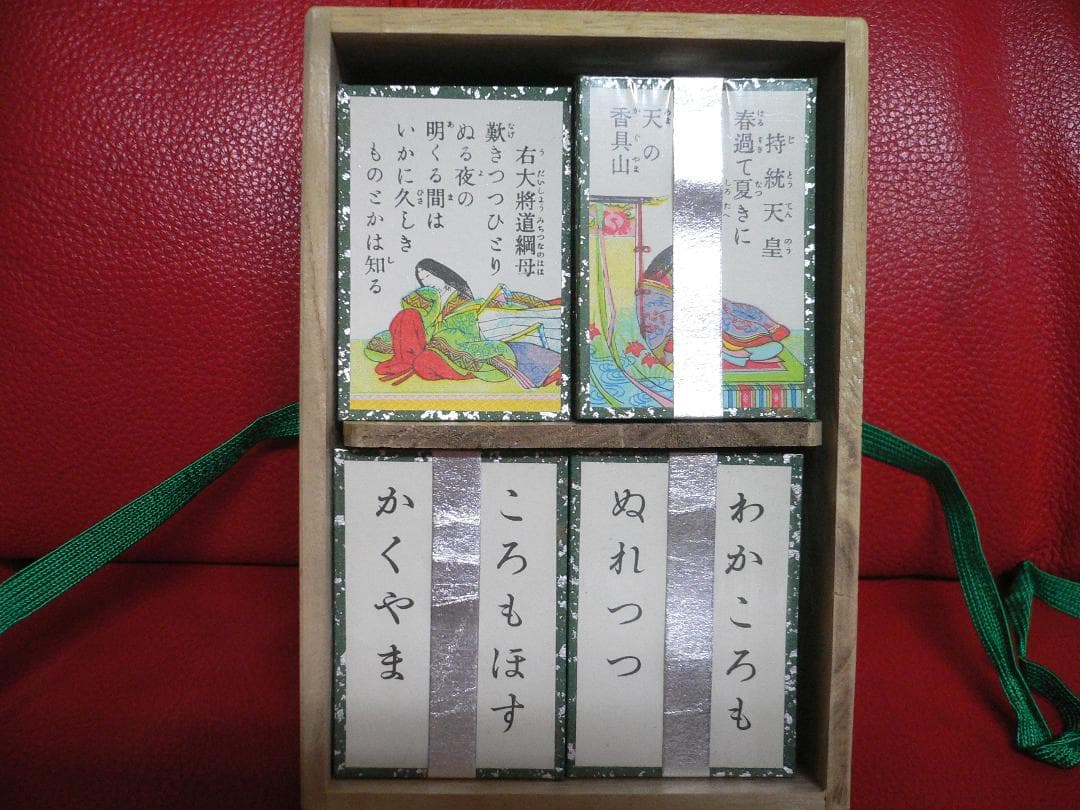 右大將道綱母
歎きつつひとり
ぬる夜の
明くる間は
いかに久しき
ものとかは知る
持統天皇
春過て夏きに
天の
香具山
ころもほす
かくやま
わかころも
ぬれつつ